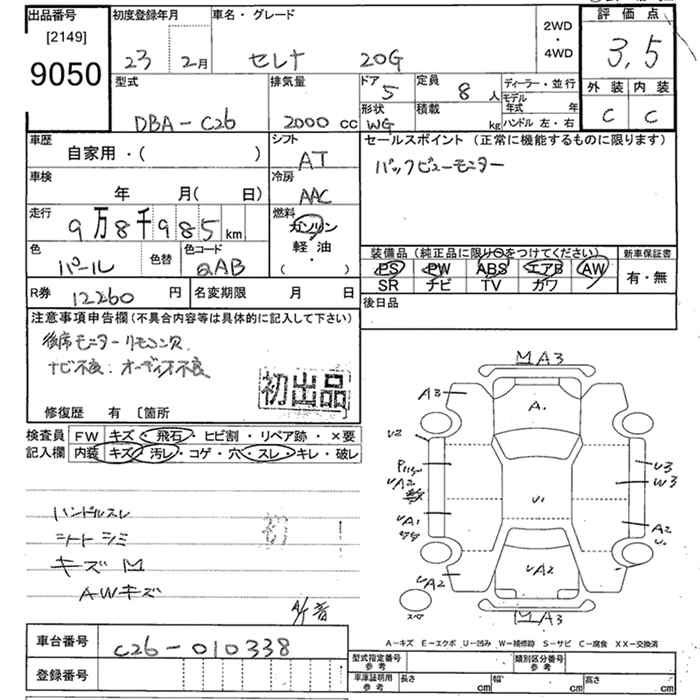 出品番号
[2149]
9050
初度登録年月
23 年 2月
車名・グレード
セレナ 20G
2WD
・
4WD
評価点
3.5
外装 内装
C C
型式
DBA-C26
排気量
2000 cc
ドア
5
形状
WG
定員
8 人
積載
kg
ディーラー・並行
モデル年式 年
ハンドル 左・右
車歴
自家用・( )
シフト
AT
車検
年 月( 日)
冷房
AAC
走行
9万8千985 km
燃料
ガソリン
軽・油
( ・ )
色
パール
色替
色コード
QAB
R券 12260 円
名変期限 月 日
セールスポイント (正常に機能するものに限ります)
バックビューモニター
装備品 (純正品に限り○をつけてください)
PS PW ABS エアB AW
SR ナビ TV カワ
新車保証書
有・無
後日品
注意事項申告欄 (不具合内容等は具体的に記入して下さい)
後席モニターリモコン欠
ナビ不良、オーディオ不良
初出品
修復歴 有 [箇所
検査員記入欄
FW キズ・飛石・ヒビ割・リペア跡・×要
内装 キズ・汚レ・コゲ・穴・スレ・キレ・破レ
ハンドルスレ
シートシミ
キズ M
AWキズ
A/F音
車台番号
C26-010338
登録番号
MA3
A3
A.
U2
UA2
UA1
U1
U3
W3
A2
U.
UA2
UA2
MA3
A-キズ E-エクボ U-凹み W-補修跡 S-サビ C-腐食 XX-交換済
型式指定番号
参考
類別区分番号
参考
車庫証明用
参考
長さ cm
幅 cm
高さ cm